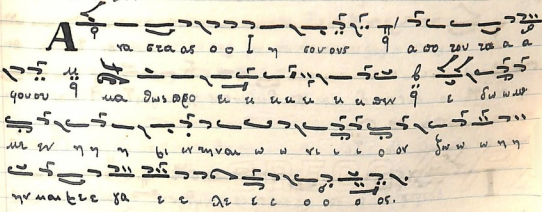 Α να στα ας ο ο Ι η σου ους α πο του τα α α
φου ου κα θως προ ει ει ει ει ει ει ει πεν ε δω ω ω
κε εν η η η μι ιν την αι ω ω νι ι ι ο ον ζω ω ω η η
ην και με ε ε γα ε ε λε ε ε ο ο ο ος.